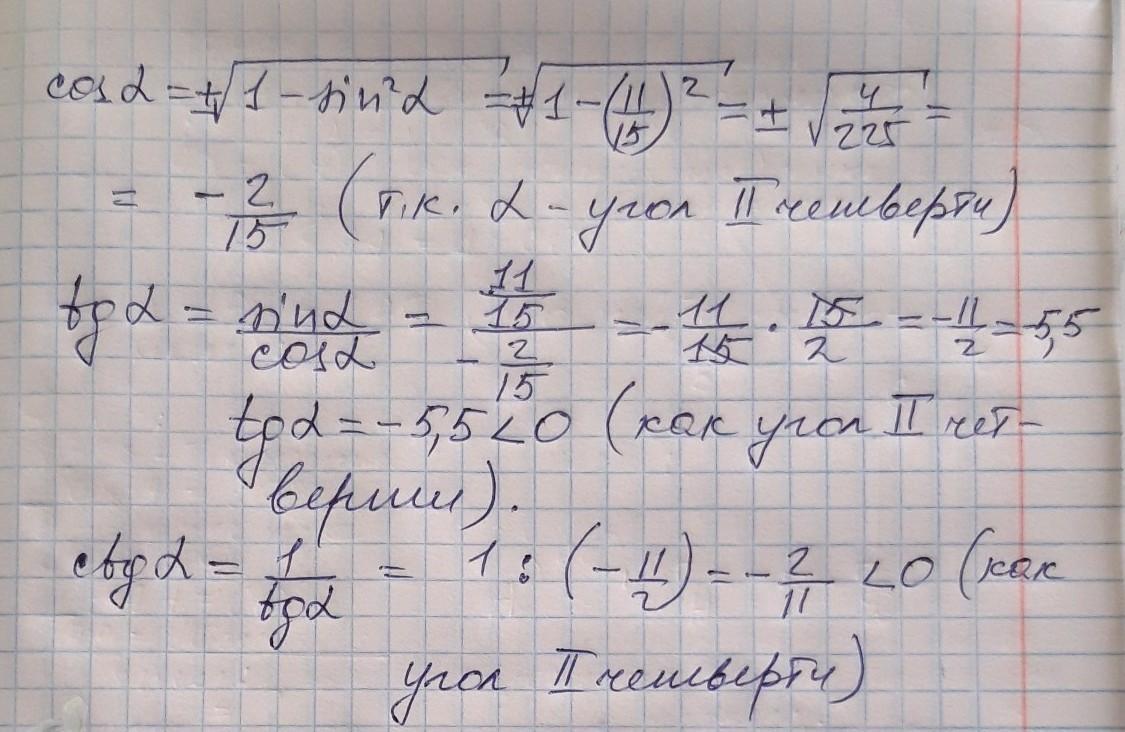 cos α = ±√(1 - sin²α) = ±√(1 - (11/15)²) = ± √(4/225) =
= - 2/15 (т.к. α - угол II четверти)
tg α = sin α/cos α = (11/15)/(- 2/15) = - 11/15 · 15/2 = - 11/2 = -5,5
tg α = - 5,5 < 0 (как угол II чет-
верти).
ctg α = 1/tg α = 1 : (- 11/2) = - 2/11 < 0 (как
угол II четверти)